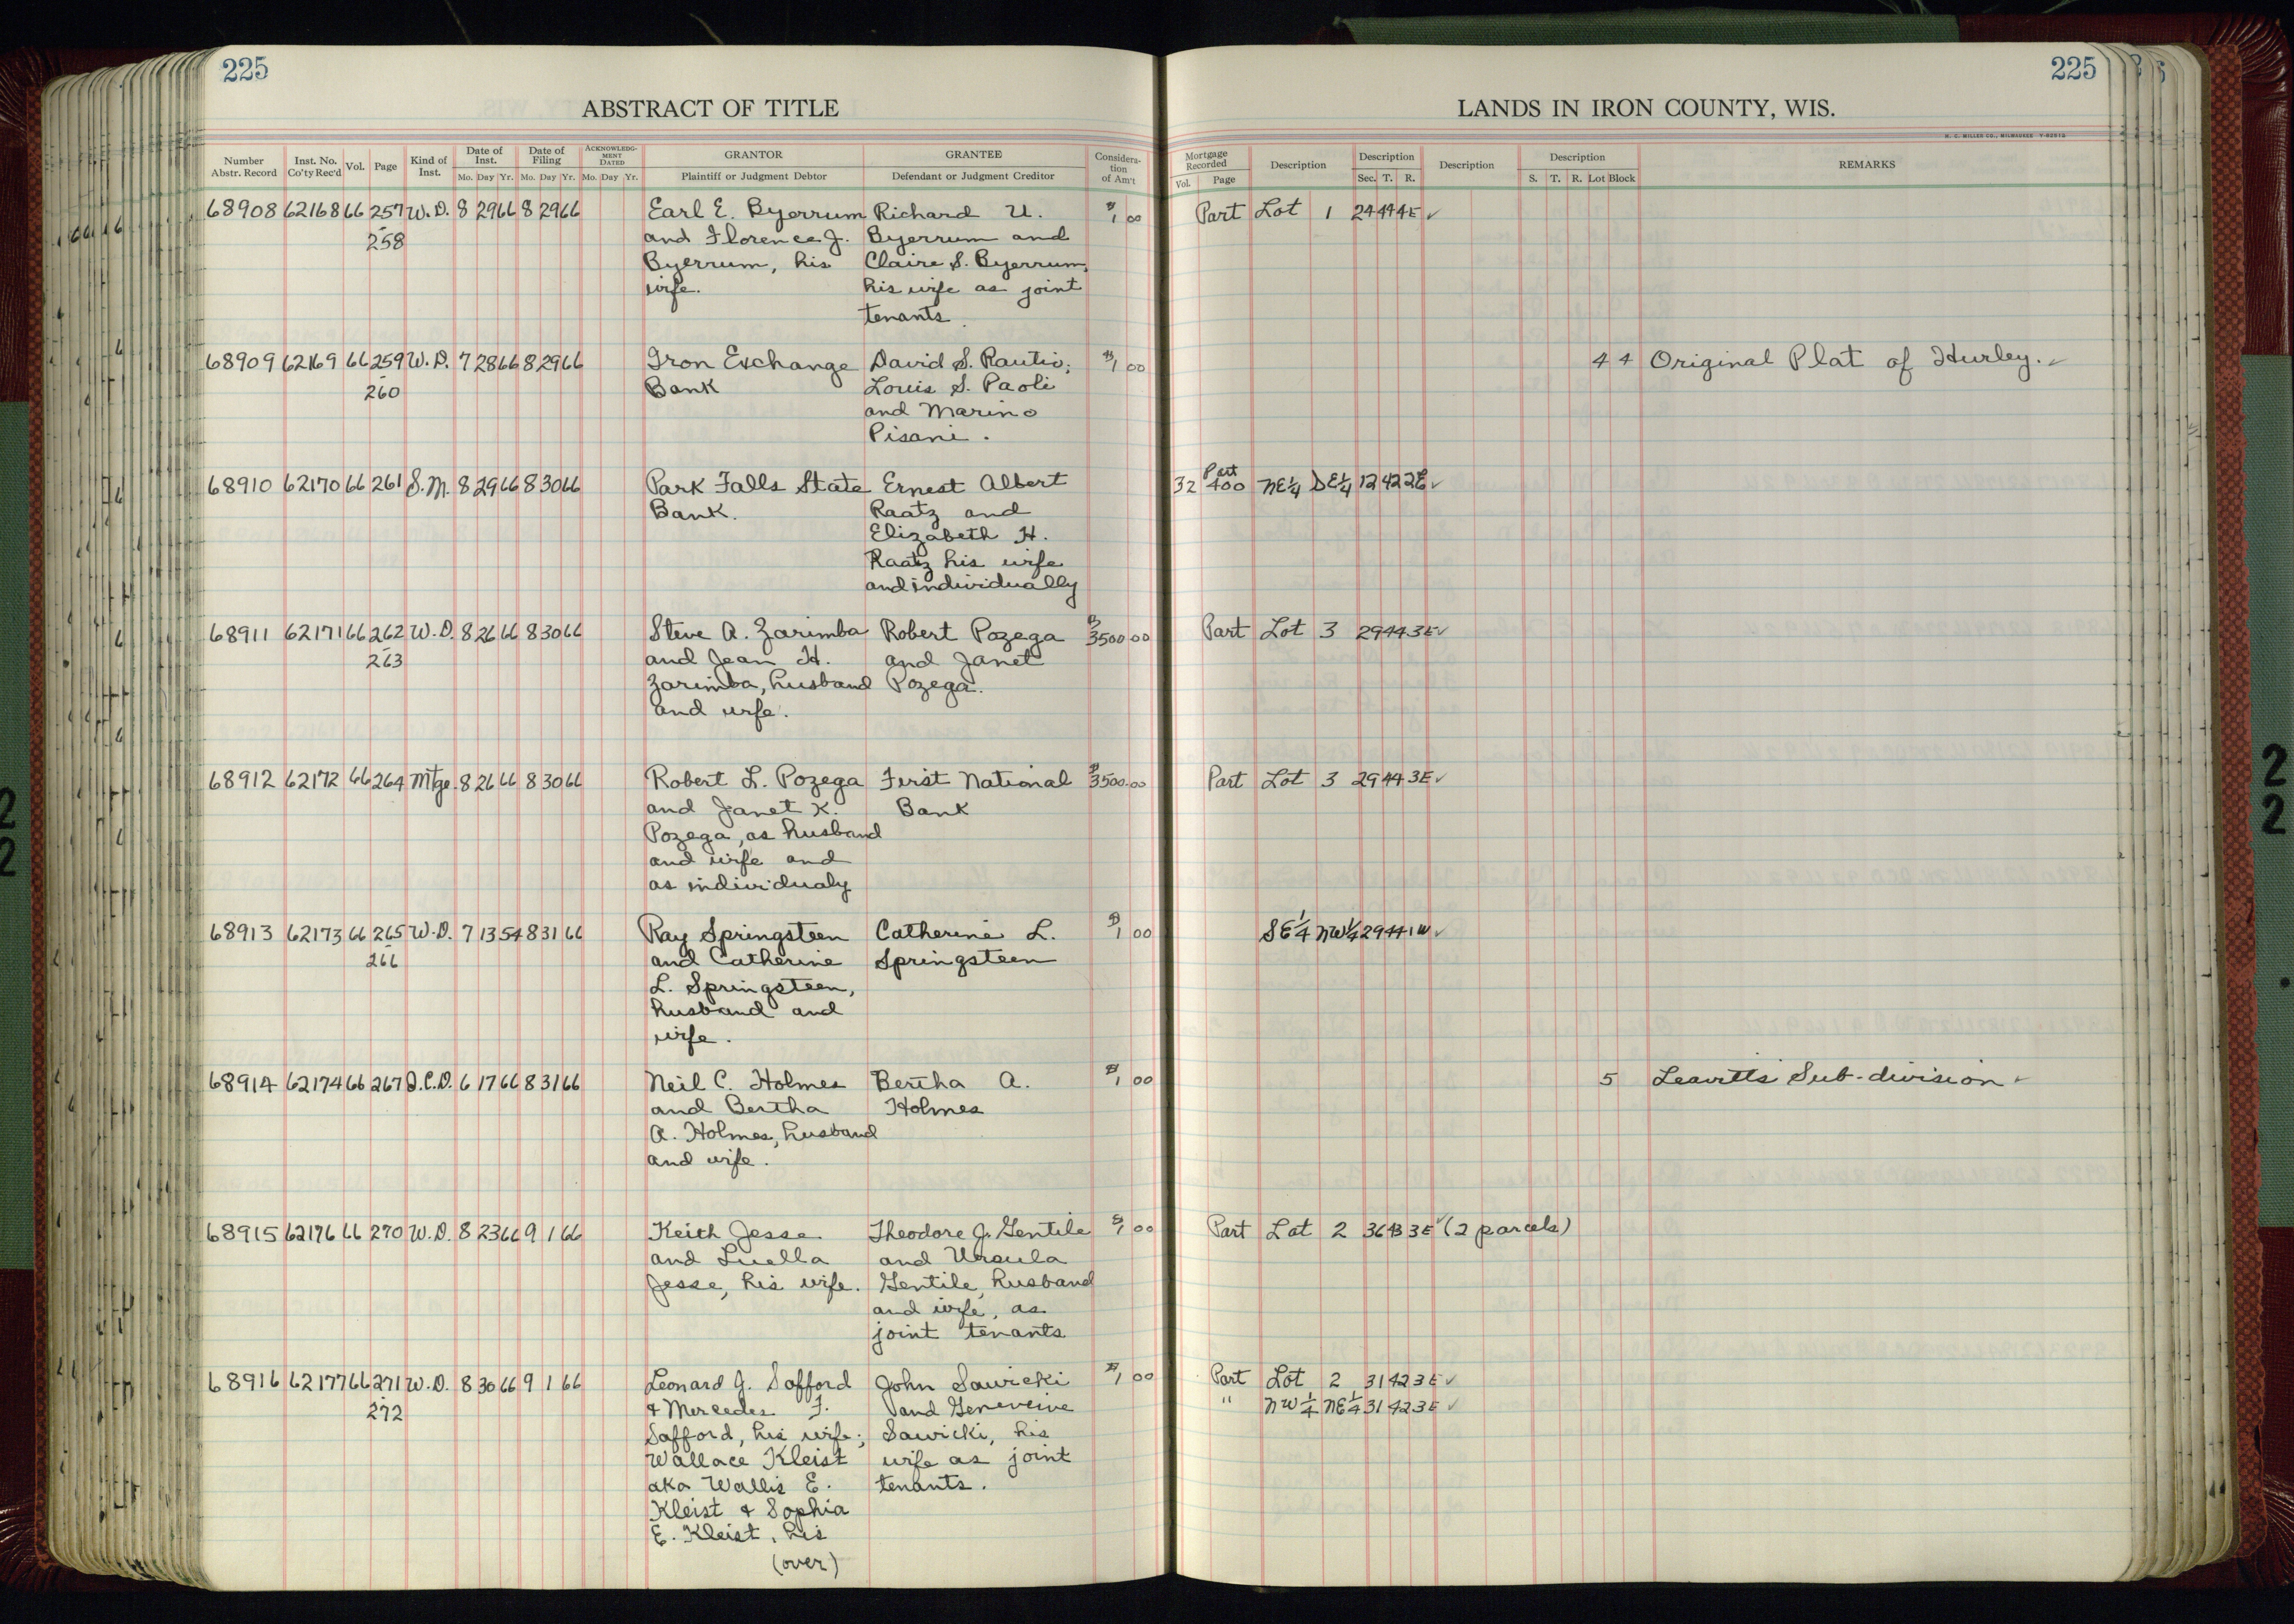 225
225
ABSTRACT OF TITLE
LANDS IN IRON COUNTY, WIS.
H. C. MILLER CO., MILWAUKEE
Number Abstr. Record Inst. No. Co'ty Rec'd Vol. Page Kind of Inst. Date of Inst. Mo. Day Yr. Date of Filing Mo. Day Yr. ACKNOWLEDGMENT DATED Mo. Day Yr. GRANTOR Plaintiff or Judgment Debtor GRANTEE Defendant or Judgment Creditor Consideration of Am't
Mortgage Recorded Vol. Page Description Description Sec. T. R. Description Description S. T. R. Lot Block REMARKS
68908 62168 66 257 W.D. 8 29 66 8 29 66 Earl E. Byerrum Richard U. $1 00 Part Lot 1 24 44 4E ✓
- 258 and Florence J. Byerrum and
Byerrum, his Claire S. Byerrum,
wife. his wife as joint
tenants.
68909 62169 66 259 W.D. 7 28 66 8 29 66 Iron Exchange David S. Rautio; $1 00 4 4 Original Plat of Hurley. ✓
- 260 Bank Louis S. Paoli
and Marino
Pisani.
68910 62170 66 261 S.M. 8 29 66 8 30 66 Park Falls State Ernest Albert 32 Part 400 NE¼ SE¼ 12 42 2E ✓
Bank. Raatz and
Elizabeth H.
Raatz his wife
and individually
68911 62171 66 262 W.D. 8 26 66 8 30 66 Steve A. Zarimba Robert Pozega $3500 00 Part Lot 3 29 44 3E ✓
- 263 and Jean H. and Janet
Zarimba, husband Pozega.
and wife.
68912 62172 66 264 Mtge. 8 26 66 8 30 66 Robert L. Pozega First National $3500.00 Part Lot 3 29 44 3E ✓
and Janet K. Bank
Pozega, as husband
and wife and
as individualy
68913 62173 66 265 W.D. 7 13 54 8 31 66 Ray Springsteen Catherine L. $1 00 SE¼ NW¼ 29 44 1W ✓
- 266 and Catherine Springsteen
L. Springsteen,
husband and
wife.
68914 62174 66 267 Q.C.D. 6 17 66 8 31 66 Neil C. Holmes Bertha A. $1 00 5 Leavitts Sub-division ✓
and Bertha Holmes
A. Holmes, husband
and wife.
68915 62176 66 270 W.D. 8 23 66 9 1 66 Keith Jesse Theodore J. Gentile $1 00 Part Lot 2 36 43 3E ✓ (2 parcels)
and Luella and Ursula
Jesse, his wife. Gentile, husband
and wife, as
joint tenants
68916 62177 66 271 W.D. 8 30 66 9 1 66 Leonard J. Safford John Sawicki $1 00 Part Lot 2 31 42 3E ✓
- 272 & Mercedes F. and Geneveive " NW¼ NE¼ 31 42 3E ✓
Safford, his wife; Sawicki, his
Wallace Kleist wife as joint
aka Wallis E. tenants.
Kleist & Sophia
E. Kleist, his
(over)